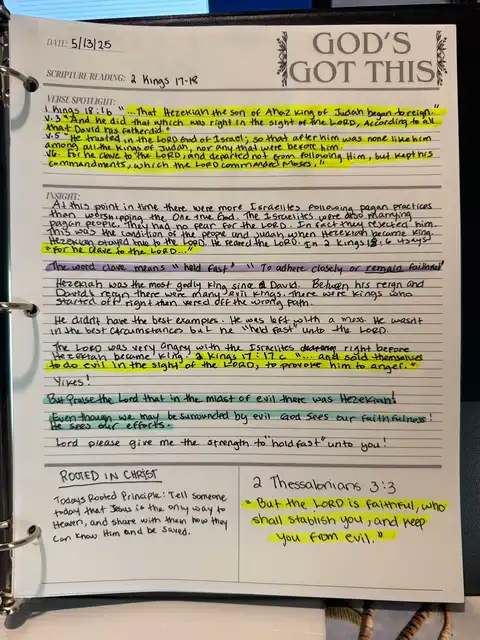 DATE: 5/13/25
GOD'S
GOT THIS
SCRIPTURE READING: 2 Kings 17-18
VERSE SPOTLIGHT:
1 Kings 18:1b "...That Hezekiah the son of Ahaz king of Judah began to reign..."
v.3 "And he did that which was right in the sight of the LORD, According to all
that David his father did."
v.5 "He trusted in the LORD God of Israel; so that after him was none like him
among all the kings of Judah, nor any that were before him.
v6- For he clave to the LORD, and departed not from following Him, but kept his
commandments, which the LORD commanded Moses."
INSIGHT:
At this point in time there were more Israelites following pagan practices
than worshipping the One true God. The Israelites were also marrying
pagan people. They had no fear for the LORD. In fact they rejected him.
This was the condition of the people and Judah when Hezekiah became King.
Hezekiah stayed true to the LORD. He feared the LORD. In 2 Kings 18:6 it says
"For he clave to the LORD..."
The word clave means "held fast" "To adhere closely or remain faithful"
Hezekiah was the most godly king since David. Between his reign and
David's reign there were many evil kings. There were kings who
started off right then veered off the wrong path.
He didn't have the best examples. He was left with a mess. He wasn't
in the best circumstances but he "held fast" unto the LORD.
The LORD was very angry with the Israelites right before
Hezekiah became king. 2 Kings 17:17c "... and sold themselves
to do evil in the sight of the LORD, to provoke him to anger."
Yikes!
But Praise the Lord that in the midst of evil there was Hezekiah!
Even though we may be surrounded by evil God sees our faithfulness!
He sees our efforts.
Lord please give me the strength to "hold fast" unto you!
ROOTED IN CHRIST
Todays Rooted Principle: Tell someone
today that Jesus is the only way to
Heaven, and share with them how they
can know Him and be saved.
2 Thessalonians 3:3
"But the LORD is faithful, who
shall stablish you, and keep
you from evil."